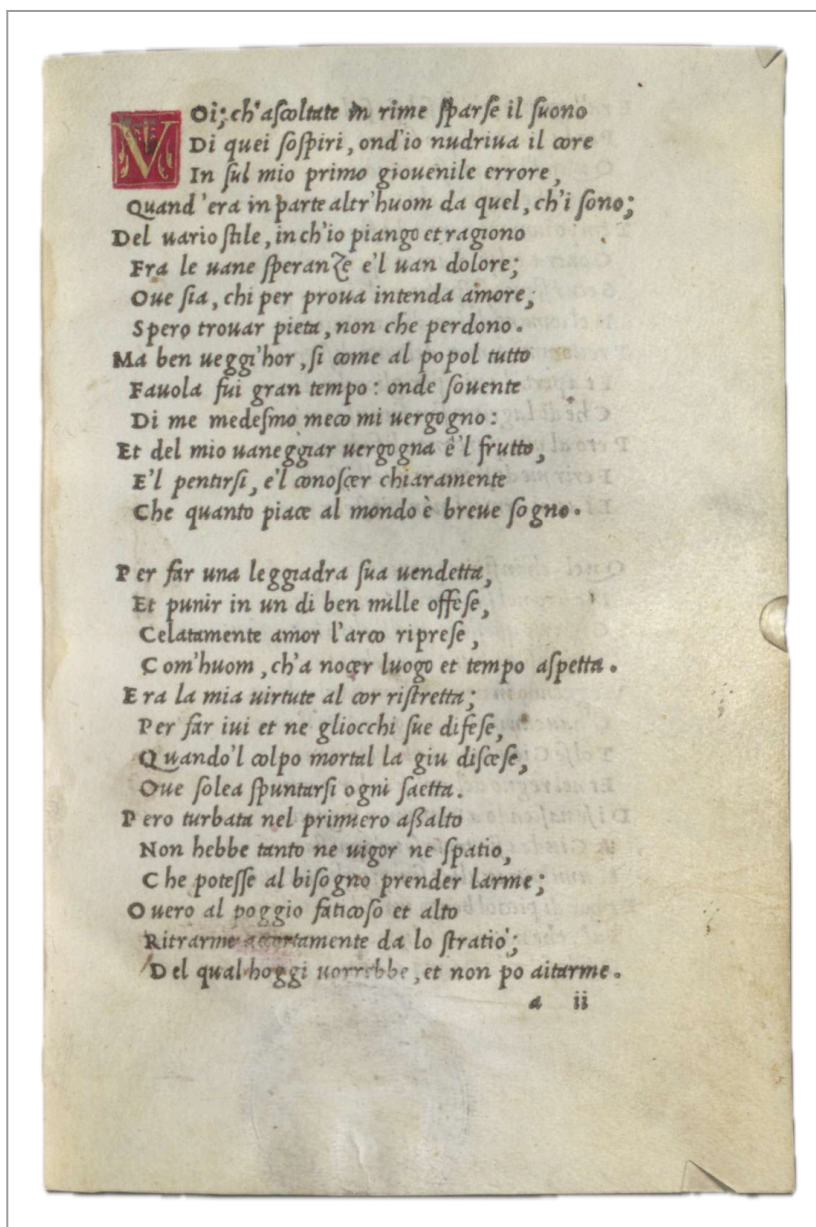 VOi; ch'aſcoltate in rime ſparſe il ſuono
Di quei ſoſpiri, ond'io nudriua il core
In ſul mio primo giouenile errore,
Quand'era in parte altr'huom da quel, ch'i ſono;
Del uario ſtile, in ch'io piango et ragiono
Fra le uane ſperanze e'l uan dolore;
Oue ſia, chi per proua intenda amore,
Spero trouar pieta, non che perdono.
Ma ben ueggi'hor, ſi come al popol tutto
Fauola fui gran tempo: onde ſouente
Di me medeſmo meco mi uergogno:
Et del mio uaneggiar uergogna è'l frutto,
E'l pentirſi, e'l conoſcer chiaramente
Che quanto piace al mondo è breue ſogno.
Per far una leggiadra ſua uendetta,
Et punir in un di ben mille offeſe,
Celatamente amor l'arco ripreſe,
Com'huom, ch'a nocer luogo et tempo aſpetta.
Era la mia uirtute al cor riſtretta;
Per far iui et ne gliocchi ſue difeſe,
Quando'l colpo mortal la giu diſceſe,
Oue ſolea ſpuntarſi ogni ſaetta.
Pero turbata nel primiero aßalto
Non hebbe tanto ne uigor ne ſpatio,
Che poteſſe al biſogno prender larme;
Ouero al poggio faticoſo et alto
Ritrarme accortamente da lo ſtratio;
Del qual hoggi uorrebbe, et non po aitarme.
a ii